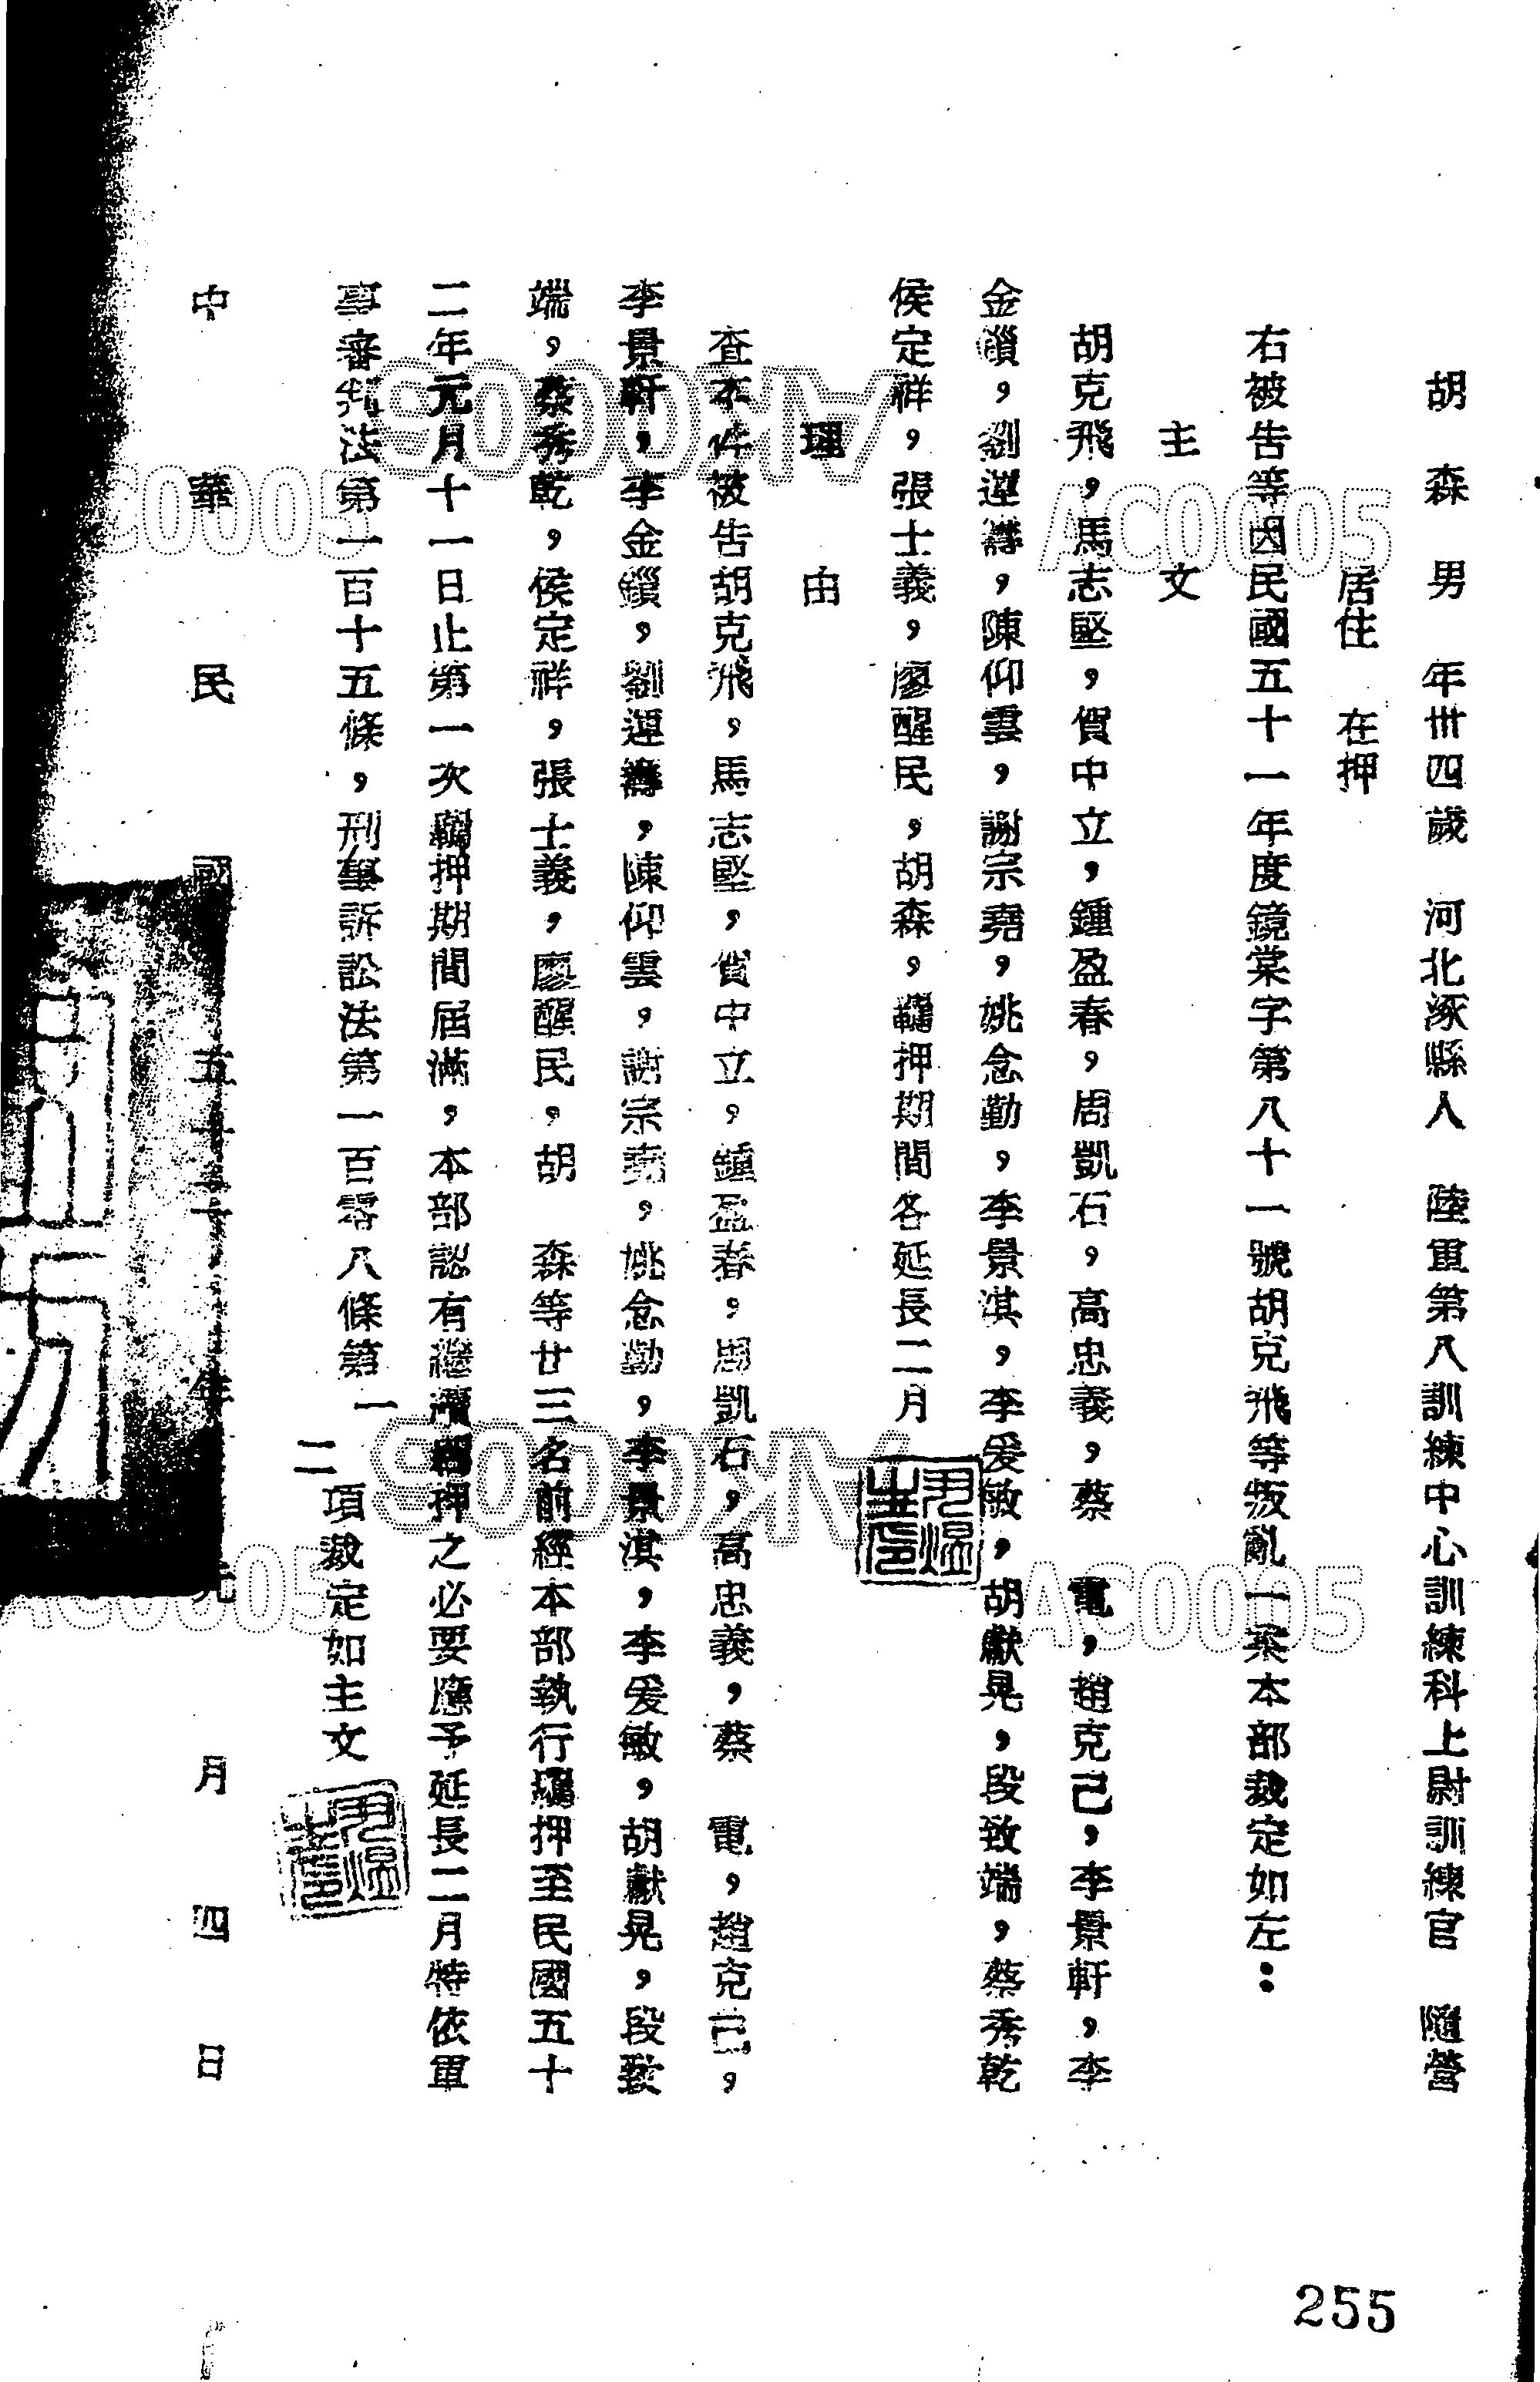 胡森 男 年卅四歲 河北涿縣人 陸軍第八訓練中心訓練科上尉訓練官 隨營
居住 在押
右被告等因民國五十一年度鏡棠字第八十一號胡克飛等叛亂一案本部裁定如左：
主文
胡克飛，馬志堅，賀中立，鍾盈春，周凱石，高忠義，蔡 電，趙克己，李景軒，李
金鎖，劉運濤，陳仰雲，謝宗堯，姚念勤，李景淇，李爰敏，胡獻晃，段致端，蔡秀乾
侯定祥，張士義，廖醒民，胡森，羈押期間各延長二月
理由
查本件被告胡克飛，馬志堅，賀中立，鍾盈春，周凱石，高忠義，蔡 電，趙克己，
李景軒，李金鎖，劉運濤，陳仰雲，謝宗堯，姚念勤，李景淇，李爰敏，胡獻晃，段致
端，蔡秀乾，侯定祥，張士義，廖醒民，胡 森等廿三名前經本部執行羈押至民國五十
二年元月十一日止第一次羈押期間屆滿，本部認有繼續羈押之必要應予延長二月特依軍
事審判法第一百十五條，刑事訴訟法第一百零八條第一
二項裁定如主文
中華民國五十二年元月四日
255
AC0005
AC0005
AC0005
AC0005
AK0005
AK0005